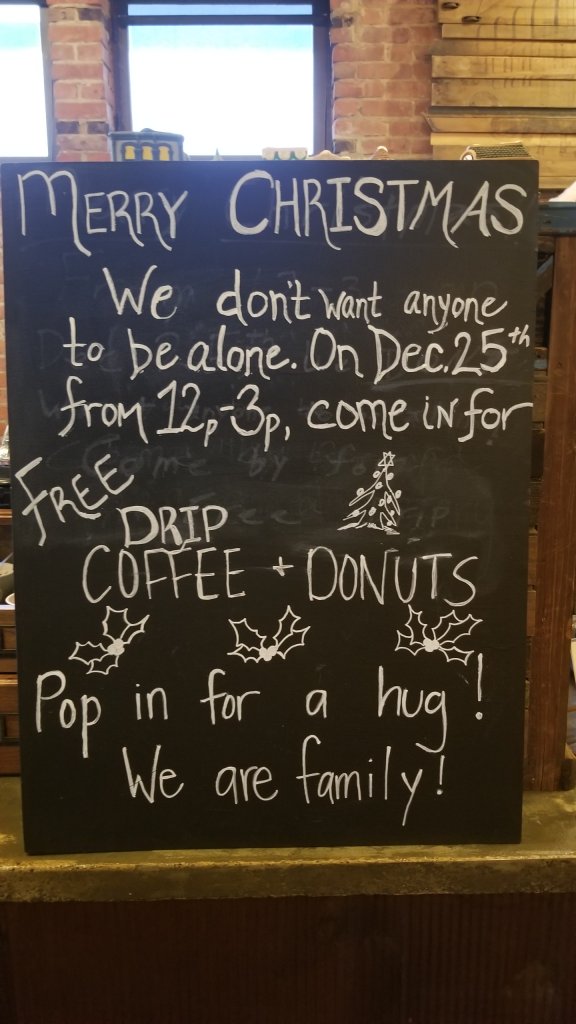 MERRY CHRISTMAS
We don't want anyone
to be alone. On Dec. 25th
from 12p-3p, come in for
FREE
DRIP
COFFEE + DONUTS
Pop in for a hug!
We are family!